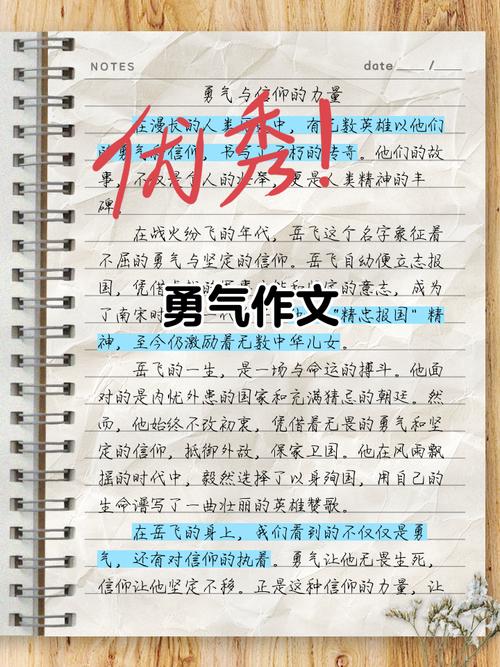 NOTES
date ___ / ___
勇气与信仰的力量
在漫长的人类历史中，有无数英雄以他们
的勇气和信仰，书写了不朽的传奇。他们的故
事，不仅是个人的壮举，更是人类精神的丰
碑
优秀！
在战火纷飞的年代，岳飞这个名字象征着
不屈的勇气与坚定的信仰。岳飞自幼便立志报
国，凭借的意志，成为
了南宋时"精忠报国"精
勇气作文
神，至今仍激励着无数中华儿女。
岳飞的一生，是一场与命运的搏斗。他面
对的是内忧外患的国家和充满猜忌的朝廷。然
而，他始终不改初衷，凭借着无畏的勇气和坚
定的信仰，抵御外敌，保家卫国。他在风雨飘
摇的时代中，毅然选择了以身殉国，用自己的
生命谱写了一曲壮丽的英雄赞歌。
在岳飞的身上，我们看到的不仅仅是勇
气，还有对信仰的执着。勇气让他无畏生死，
信仰让他坚定不移。正是这种信仰的力量，让